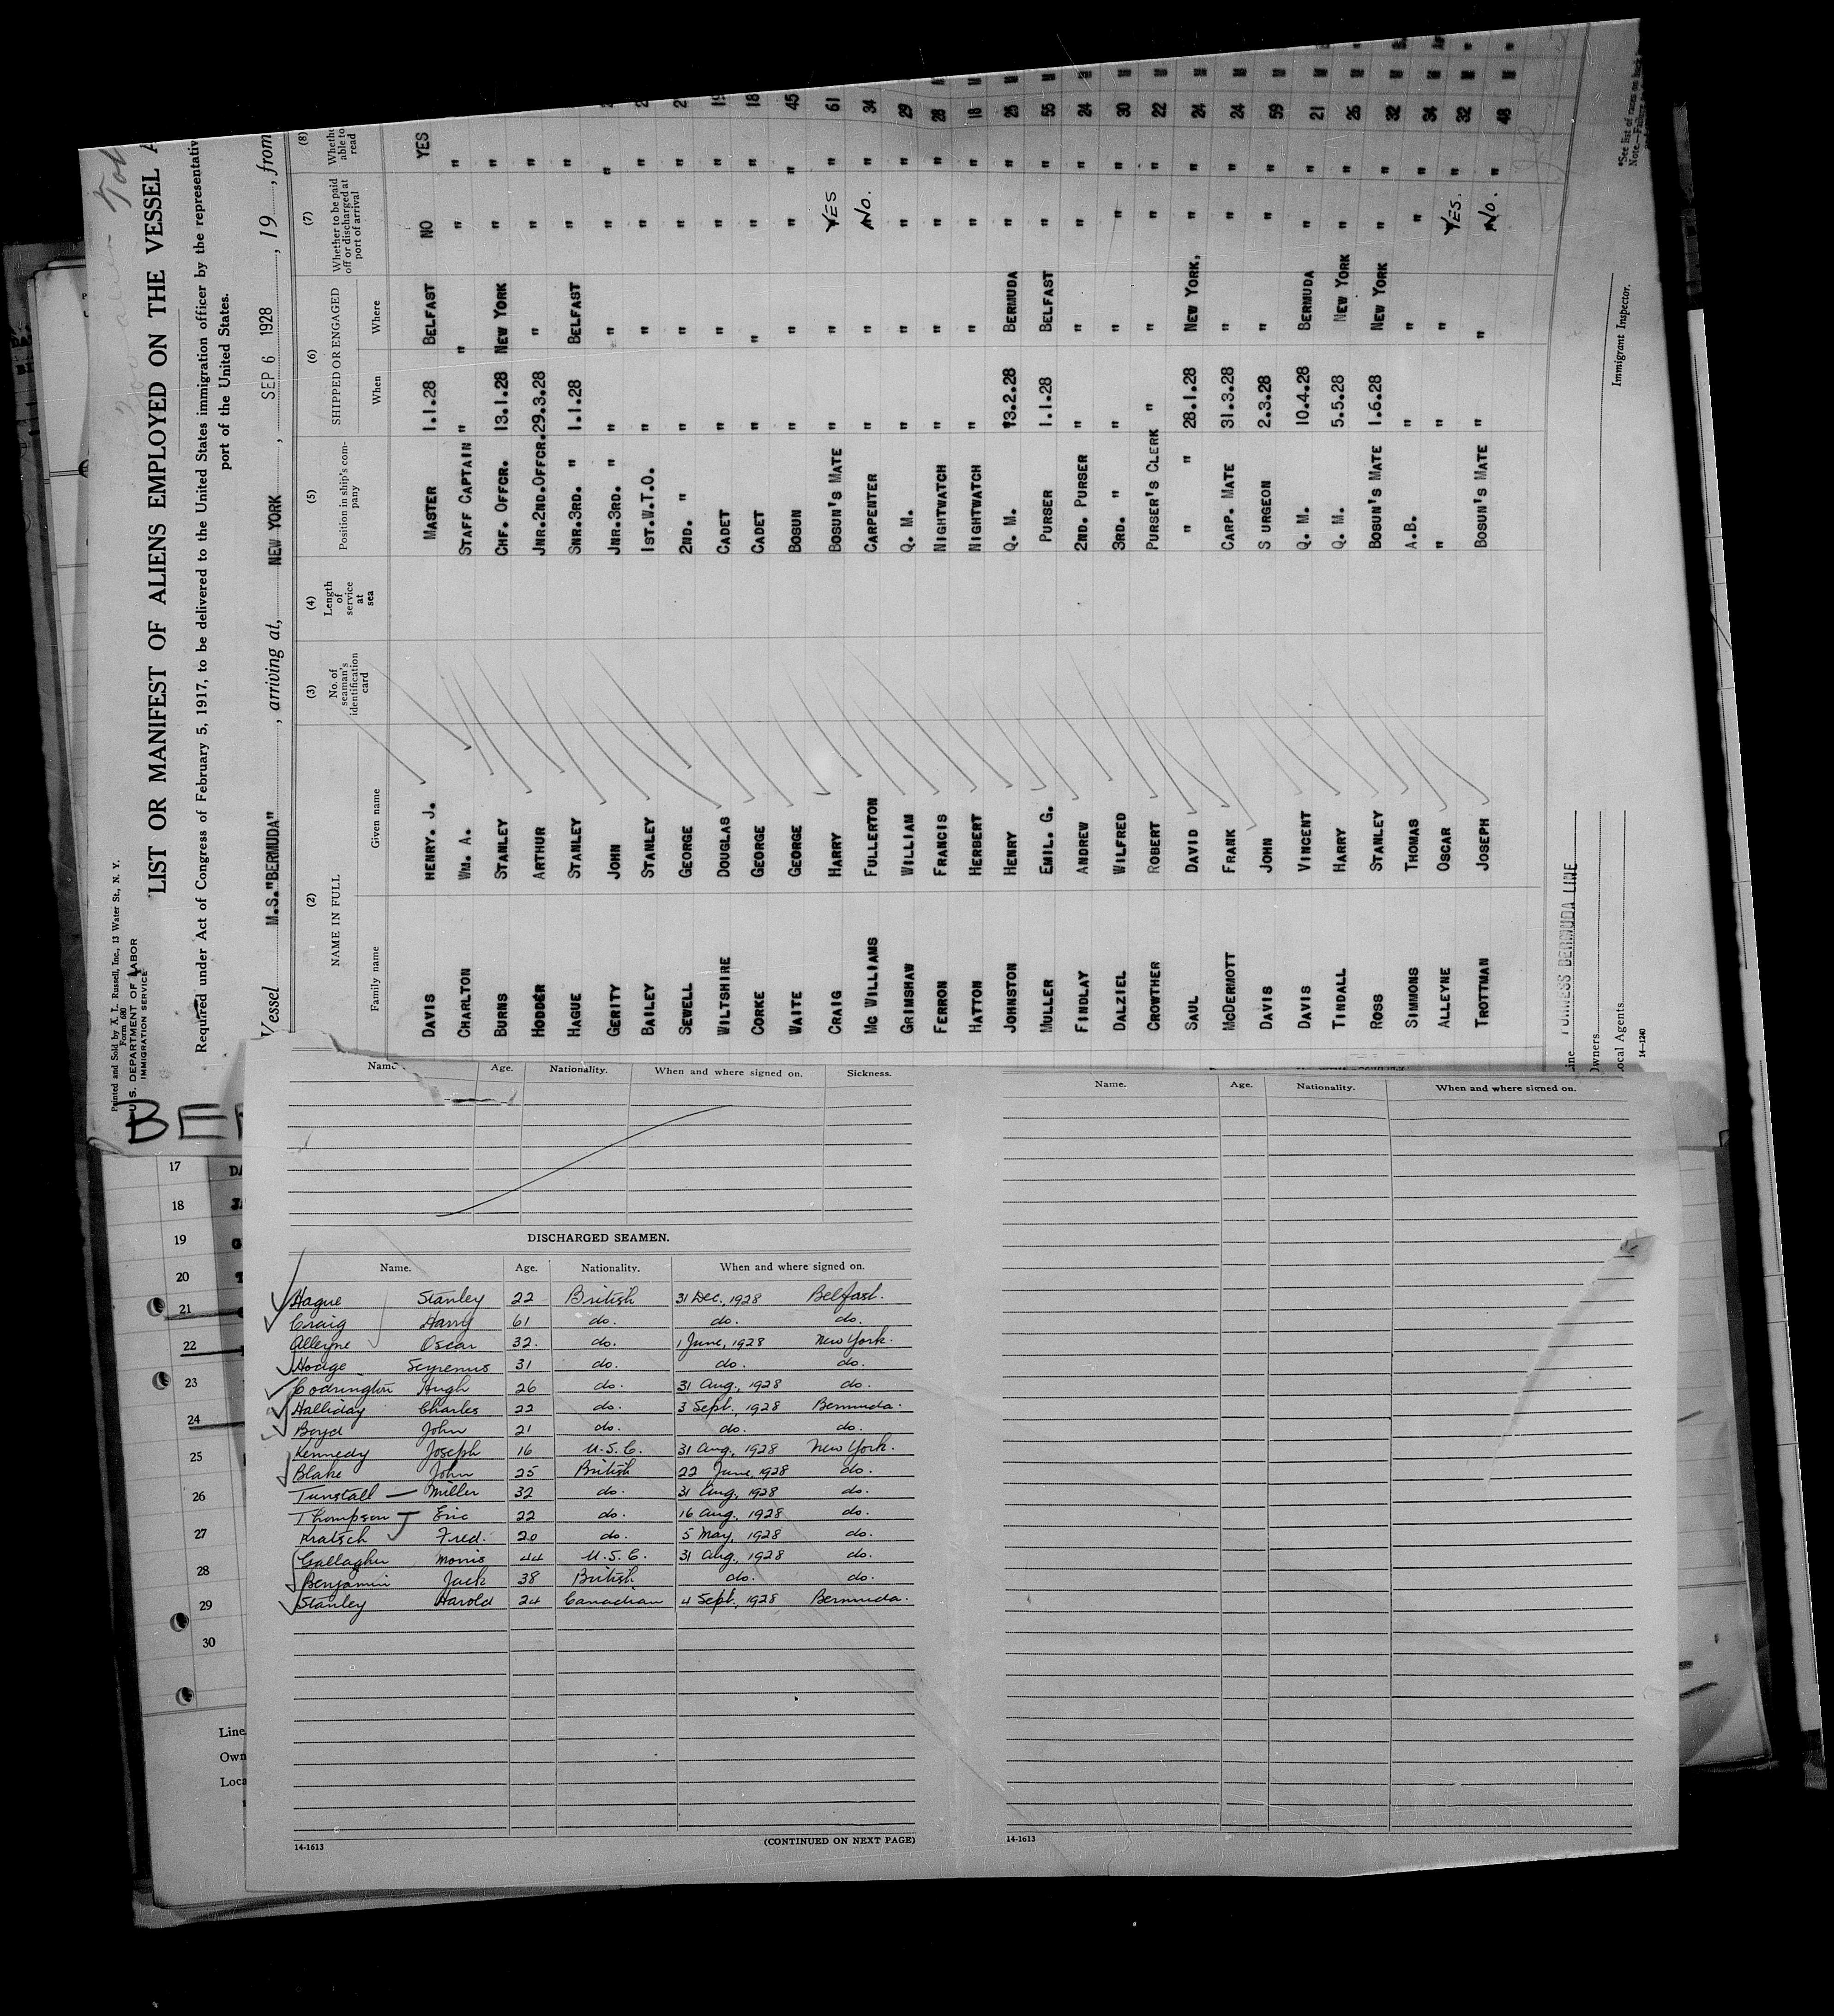 Printed and Sold by A. L. Russell, Inc., 13 Water St., N. Y.
Form 680
U.S. DEPARTMENT OF LABOR
IMMIGRATION SERVICE
LIST OR MANIFEST OF ALIENS EMPLOYED ON THE VESSEL A
Required under Act of Congress of February 5, 1917, to be delivered to the United States immigration officer by the representativ
port of the United States.
Vessel M.S."BERMUDA", arriving at, NEW YORK, SEP 6 1928, 19, from
(2) (3) (4) (5) (6) (7) (8)
NAME IN FULL No. of seaman's identification card Length of service at sea Position in ship's company SHIPPED OR ENGAGED Whether to be paid off or discharged at port of arrival Whethe able to read
Family name Given name When Where
DAVIS HENRY. J. MASTER 1.1.28 BELFAST NO YES
CHARLTON WM. A. STAFF CAPTAIN " " " "
BURNS STANLEY CHF. OFFCR. 13.1.28 NEW YORK " "
HODDER ARTHUR JNR.2ND.OFFCR. 29.3.28 " " "
HAGUE STANLEY SNR.3RD. " 1.1.28 BELFAST " "
GERITY JOHN JNR.3RD. " " " " "
BAILEY STANLEY 1ST.W.T.O. " " " "
SEWELL GEORGE 2ND. " " " " "
WILTSHIRE DOUGLAS CADET " " " " 19
CORKE GEORGE CADET " " " " 18
WAITE GEORGE BOSUN " " " " 45
CRAIG HARRY BOSUN'S MATE " " YES " 61
MC WILLIAMS FULLERTON CARPENTER " " NO. " 34
GRIMSHAW WILLIAM Q. M. " " " " 29
FERRON FRANCIS NIGHTWATCH " " " " 28 M
HATTON HERBERT NIGHTWATCH " " " " 18 M
JOHNSTON HENRY Q. M. 13.2.28 BERMUDA " " 25 M
MULLER EMIL. G. PURSER 1.1.28 BELFAST " " 55 M
FINDLAY ANDREW 2ND. PURSER " " " " 24 M
DALZIEL WILFRED 3RD. " " " " " 30 M
CROWTHER ROBERT PURSER'S CLERK " " " " 22 M
SAUL DAVID " " 28.1.28 NEW YORK, " " 24 M
MCDERMOTT FRANK CARP. MATE 31.3.28 " " " 24 M
DAVIS JOHN SURGEON 2.3.28 " " " 59 M
DAVIS VINCENT Q. M. 10.4.28 BERMUDA " " 21 M
TINDALL HARRY Q. M. 5.5.28 NEW YORK " " 26 M
ROSS STANLEY BOSUN'S MATE 1.6.28 NEW YORK " " 32 M
SIMMONS THOMAS A.B. " " " " 34 M
ALLEYNE OSCAR " " " YES. " 32 M
TROTTMAN JOSEPH BOSUN'S MATE " " NO. " 48 M
Line FURNESS BERMUDA LINE
Owners
Local Agents
14—1240
Immigrant Inspector.
*See list of races on back
BER
17
18
19
20
21
22
23
24
25
26
27
28
29
30
Line
Own
Loca
Name Age. Nationality. When and where signed on. Sickness.
DISCHARGED SEAMEN.
Name. Age. Nationality. When and where signed on.
Hague Stanley 22 British 31 Dec., 1928 Belfast.
Craig Harry 61 do. do. do.
Alleyne Oscar 32. do. 1 June, 1928 New York.
Hodge Scyrenus 31 do. do. do.
Codrington Hugh 26 do. 31 Aug., 1928 do.
Halliday Charles 22 do. 3 Sept., 1928 Bermuda.
Boyd John 21 do. do. do.
Kennedy Joseph 16 U.S.C. 31 Aug., 1928 New York.
Blake John 25 British 22 June, 1928 do.
Tunstall — Miller 32 do. 31 Aug., 1928 do.
Thompson Eric 22 do. 16 Aug., 1928 do.
Kratsch Fred. 20 do. 5 May, 1928 do.
Gallagher Morris 44 U.S.C. 31 Aug., 1928 do.
Benjamin Jack 38 British do. do.
Stanley Harold 24 Canadian 4 Sept., 1928 Bermuda.
14-1613
(CONTINUED ON NEXT PAGE)
Name. Age. Nationality. When and where signed on.
14-1613